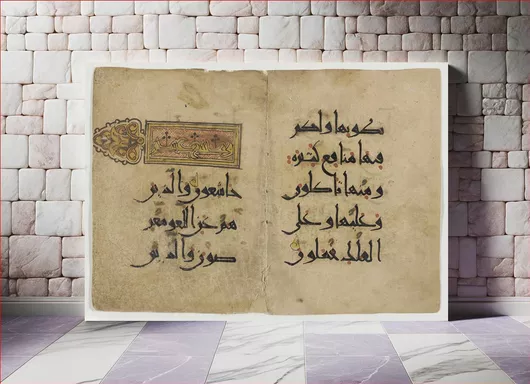 بطونها ولكم
فيها منافع كثيرة
ومنها تاكلون
وعليها وعلى
الفلك تحملون
خاشعون والذين
هم عن اللغو معر
ضون والذين